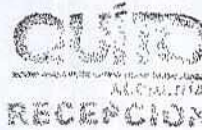 QUITO
ALCALDÍA
RECEPCIÓN